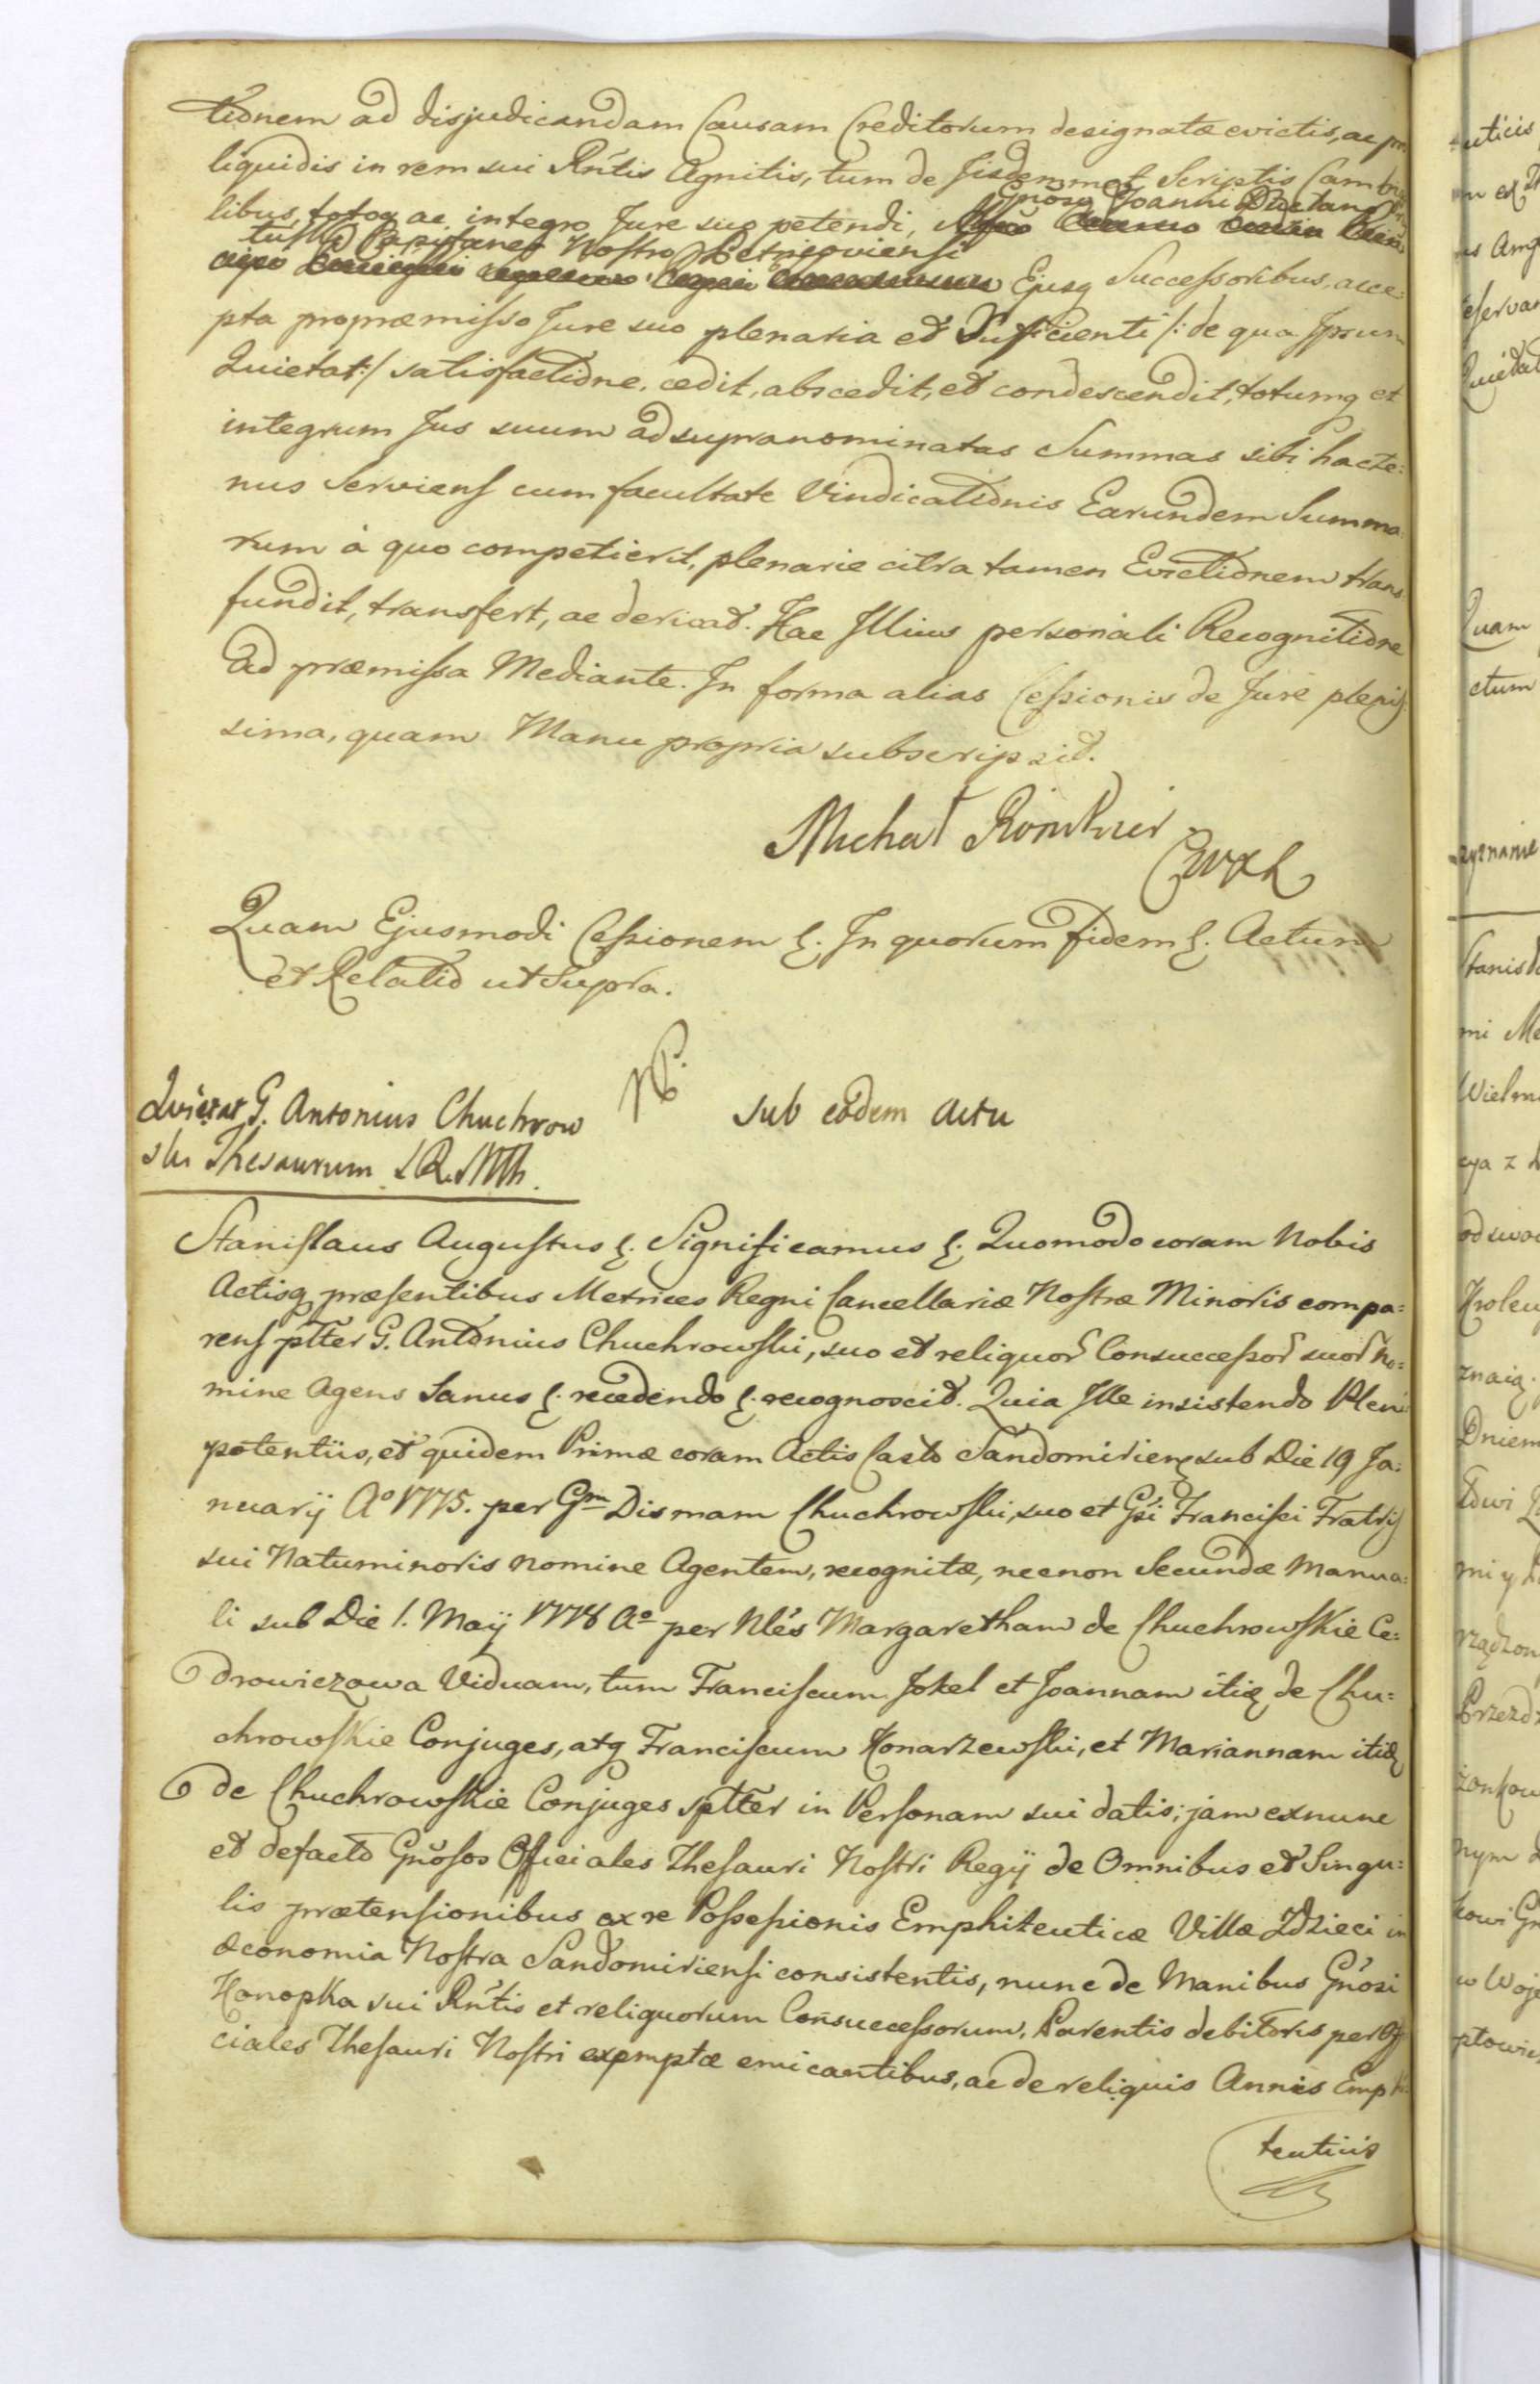 tionem ad disjudicandam Causam Creditorum designatæ evictis, ac pro
liquidis in rem sui Rńtis Agnitis, tum de Iisdemmet Scriptis Cambia
Gnoso Joanni
libus, totoq ac integro Jure suo petendi,
Nostro Petricoviensi
Ejusq Successoribus, acce:
pta propræmisso Jure suo plenaria et Sufficienti /: de qua Ipsum
Quietat :/ satisfactione, cedit, abscedit, et condescendit, totumq et
integrum Jus suum ad supranominatas Summas sibi hacte:
nus Serviens cum facultate Vindicationis Earundem Summa:
rum à quo competierit, plenarie citra tamen Evictionem trans
fundit, transfert, ac derivat. Hac Illius personali Recognitione
Ad præmissa Mediante. In forma alias Cessionis de Jure plenis
sima, quam Manu propria subscripsit.
Michał
Quam Ejusmodi Cessionem &. In quorum fidem &. Actum
et Relatio ut Supra.
Quietat G. Antonius Chuchrow
ski Thesaurum S. R. M.
sub eodem actu
Stanislaus Augustus &. Significamus &. Quomodo coram Nobis
Actisq præsentibus Metrices Regni Cancellariæ Nostræ Minoris compa:
rens pltter G. Antonius Chuchrowski, suo et reliquor Consuccessor suor No:
mine Agens Sanus &. recedendo &. recognoscit. Quia Ille insistendo Pleni
potentiis, et quidem Primæ coram Actis Castr Sandomirien sub Die 19 Ja:
nuarij Aº 1775. per Gm Dismam Chuchrowski, suo et Gsi Francisci Fratris
sui Natuminoris nomine Agentem, recognitæ, necnon Secundæ Manua:
li sub Die 1. Maij 1778 Aº per Nlés Margaretham de Chuchrowskie Ce:
drowiczowa Viduam, tum Franciscum Jokel et Joannam itid de Chu:
chrowskie Conjuges, atq Franciscum Konarzewski, et Mariannam itid
de Chuchrowskie Conjuges spltter in Personam sui datis; jam exnunc
et defacto Gnósos Officiales Thesauri Nostri Regij de Omnibus et Singu:
lis prætensionibus ex re Possessionis Emphiteuticæ Villæ Zdzieci in
œconomia Nostra Sandomiriensi consistentis, nunc de Manibus Gnósi
Konopka sui Rńtis et reliquorum Consuccessorum, Parentis debitoris per Offi
ciales Thesauri Nostri exemptæ emicantibus, ac de reliquis Annis Emphi
teuticis